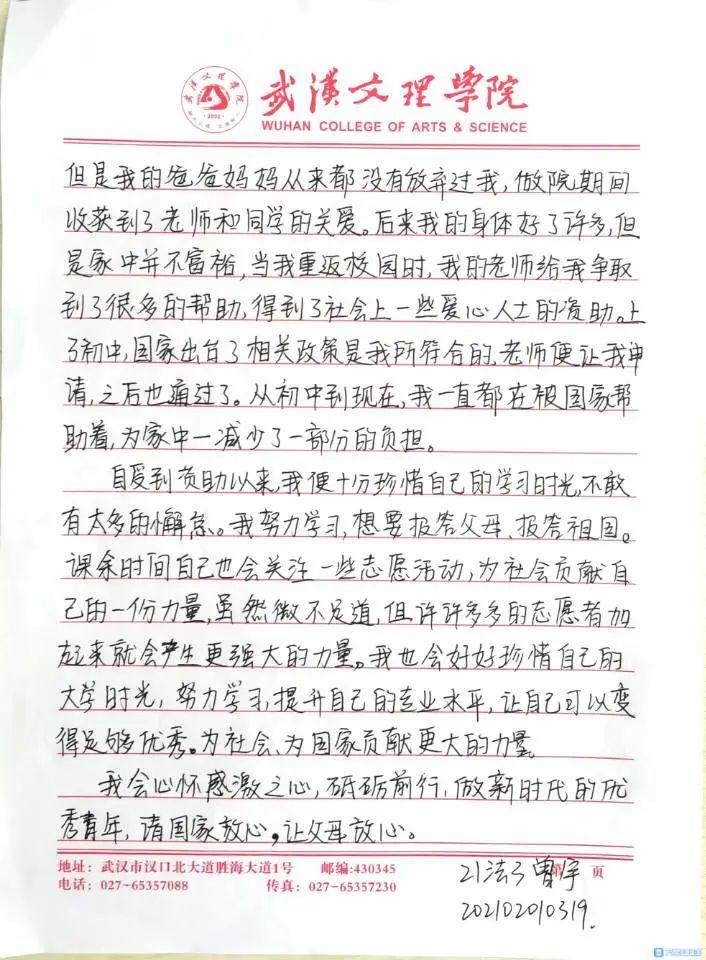 武漢文理學院
WUHAN COLLEGE OF ARTS & SCIENCE
但是我的爸爸妈妈从来都没有放弃过我，做院期间
收获到了老师和同学的关爱。后来我的身体好了许多，但
是家中并不富裕，当我重返校园时，我的老师给我争取
到了很多的帮助，得到了社会上一些爱心人士的资助。上
了初中，国家出台了相关政策是我所符合的，老师便让我申
请，之后也通过了。从初中到现在，我一直都在被国家帮
助着，为家中一减少了一部份的负担。
自受到资助以来，我便十分珍惜自己的学习时光，不敢
有太多的懈怠。我努力学习，想要报答父母、报答祖国。
课余时间自己也会关注一些志愿活动，为社会贡献自
己的一份力量，虽然微不足道，但许许多多的志愿者加
起来就会产生更强大的力量。我也会好好珍惜自己的
大学时光，努力学习，提升自己的专业水平，让自己可以变
得足够优秀。为社会、为国家贡献更大的力量。
我会心怀感激之心，砥砺前行，做新时代的优
秀青年，请国家放心，让父母放心。
地址：武汉市汉口北大道胜海大道1号 邮编:430345 第 页
电话：027-65357088 传真：027-65357230
21法3 曾宇
202102010319.